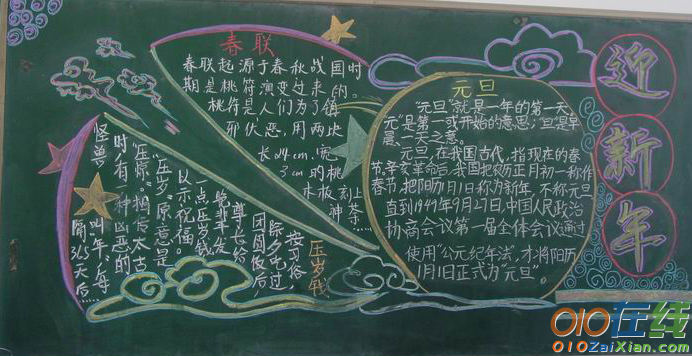 春联
春联起源于春秋战国时
期是桃符演变过来的。
桃符是人们为了镇
邪伏恶,用两块
长24cm,宽
3cm的桃
木板刻上
神荼……
压岁钱
按习俗,
除夕吃过
团圆饭后
尊长给
晚辈发
一点压岁钱
以示祝福。
"压岁"原意是
"压惊"相传太古
时,有一种凶恶的
怪兽叫"年",每
隔365天后……
元旦
"元旦"就是一年的第一天。
元"是第一或开始的意思;旦"是早
晨、一天之意。
元旦,在我国古代,指现在的春
节,辛亥革命后,我国把农历正月初一称作
春节,把阳历1月1日称为新年,不称元旦
直到1949年9月27日,中国人民政治
协商会议第一届全体会议通过
使用"公元纪年法",才将阳历
1月1日正式为"元旦"。
迎新年
010在线
010ZaiXian.com